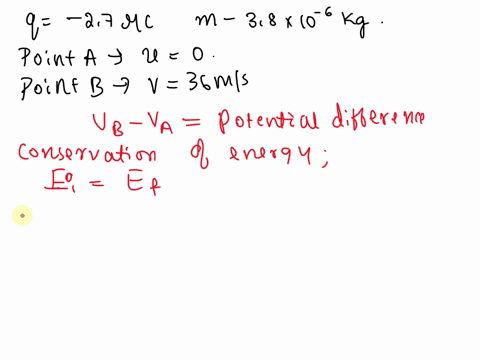 q = -2.7 μC m - 3.8 × 10⁻⁶ Kg .
Point A → u = 0 .
Point B → V = 36 m/s
V_B - V_A = Potential difference
conservation of energy ;
E_i = E_f